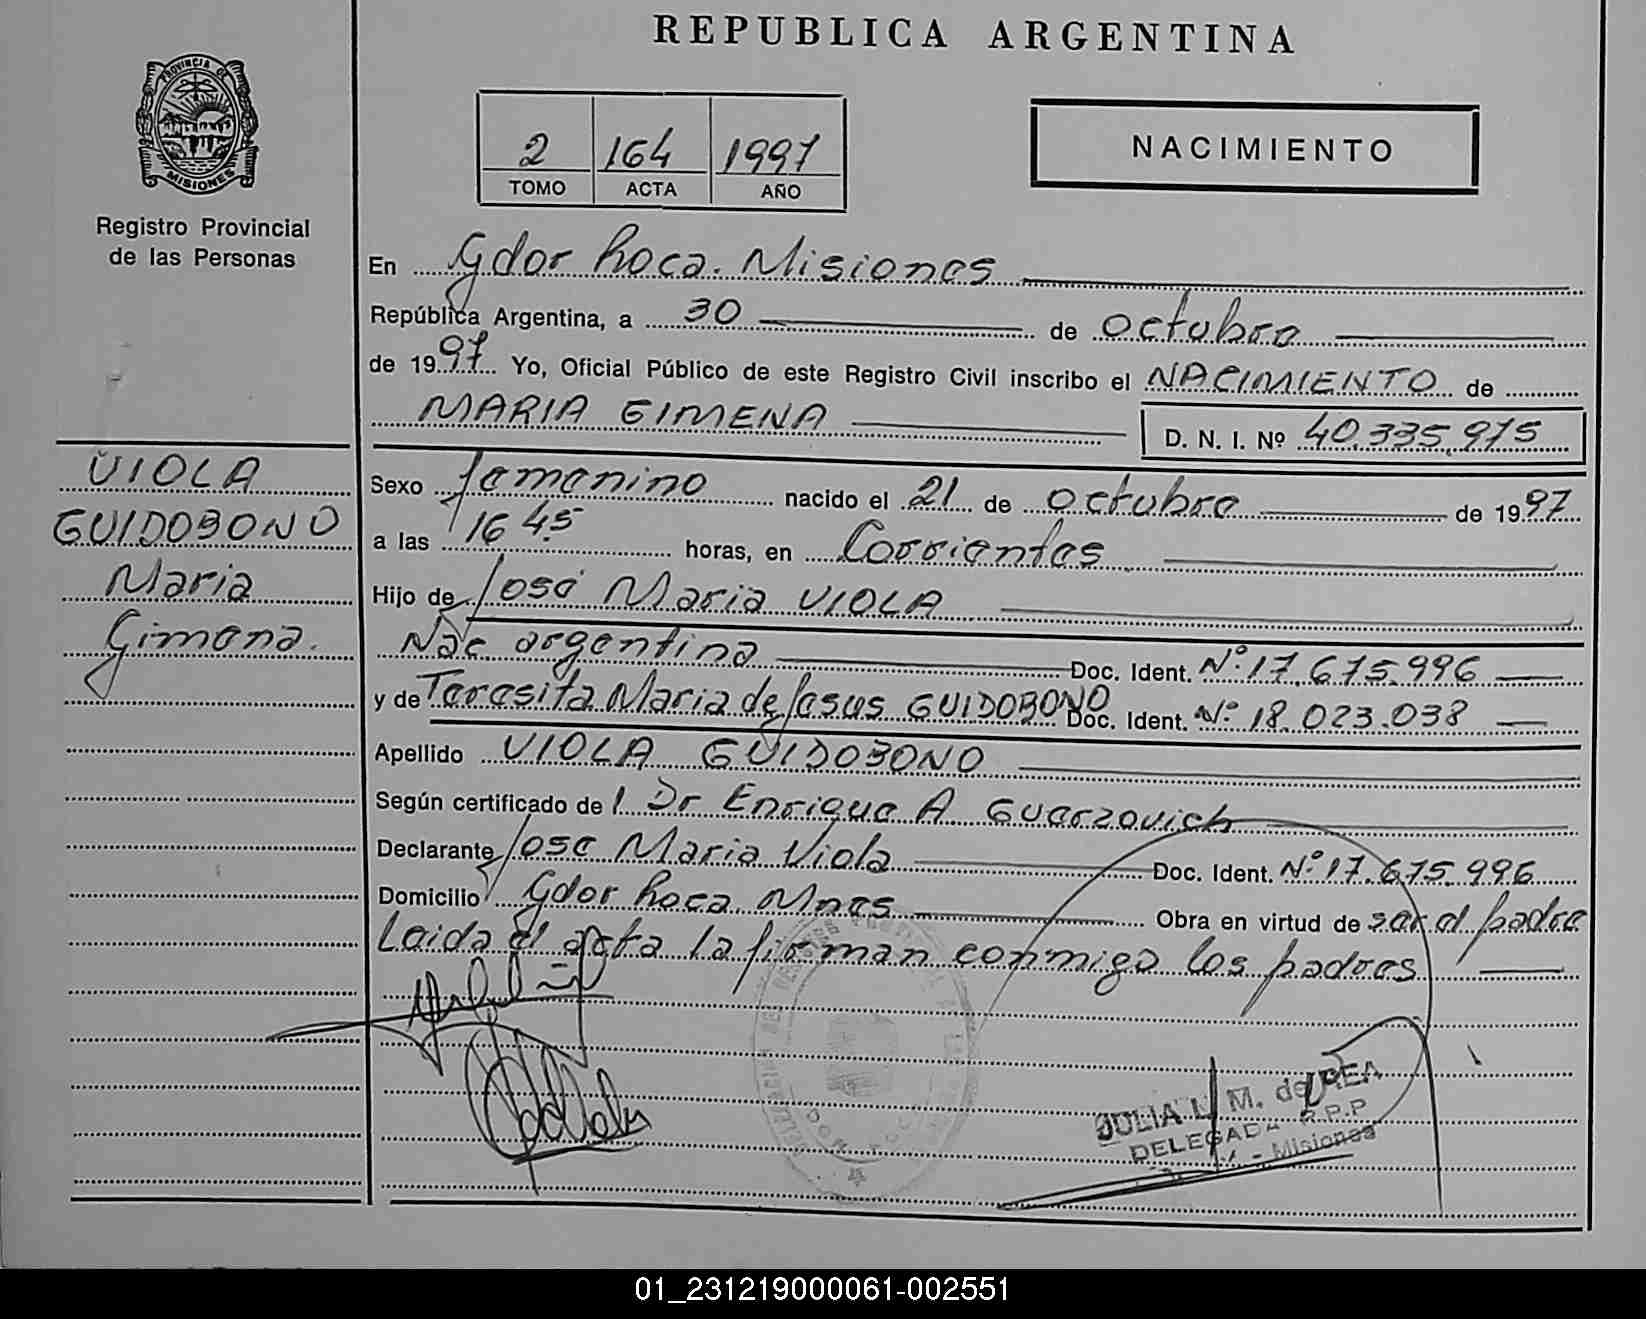 REPUBLICA ARGENTINA
PROVINCIA DE
MISIONES
Registro Provincial
de las Personas
2 164 1997
TOMO ACTA AÑO
NACIMIENTO
En Gdor Roca. Misiones
República Argentina, a 30 de octubre
de 1997. Yo, Oficial Público de este Registro Civil inscribo el NACIMIENTO de
MARIA GIMENA
D. N. I. Nº 40.335.975
VIOLA
GUIDOBONO
Maria
Gimena.
Sexo femenino nacido el 21 de octubre de 1997
a las 16 45 horas, en Corrientes
Hijo de José Maria VIOLA
Nac argentina Doc. Ident. Nº 17.675.996
y de Teresita Maria de Jesus GUIDOBONO Doc. Ident. Nº 18.023.038
Apellido VIOLA GUIDOBONO
Según certificado de l Dr Enrique A Guerzovich
Declarante Jose Maria Viola Doc. Ident. Nº 17.675.996
Domicilio Gdor Roca Mnes Obra en virtud de ser el padre
Leida el acta la firman conmigo los padres
JULIA L. M. de REA
DELEGADA R.P.P
- Misiones
01_231219000061-002551